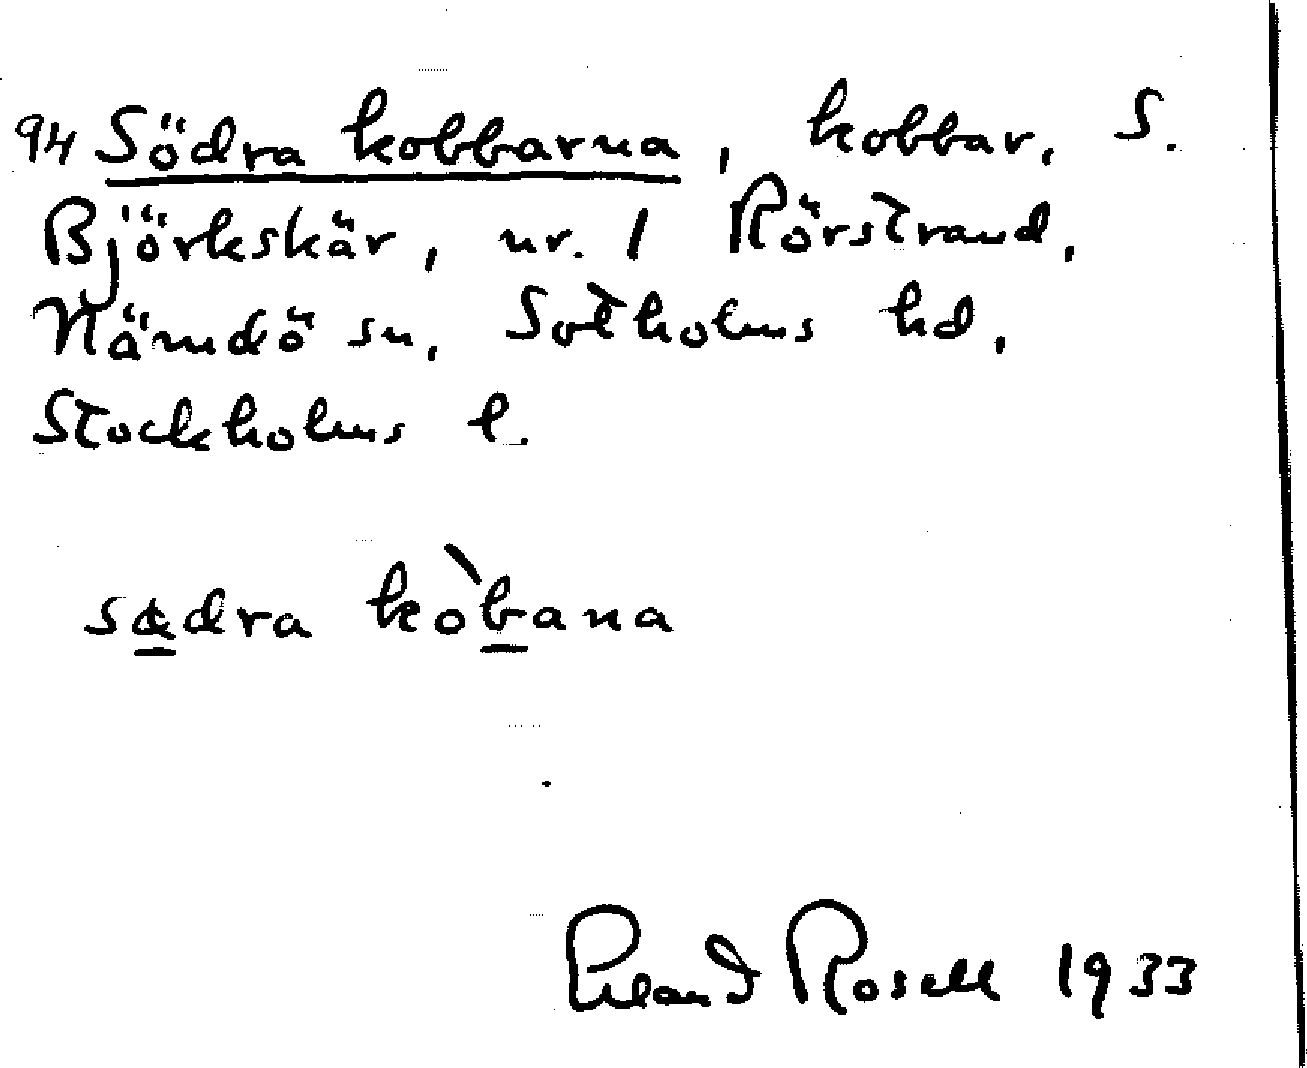 94 Södra kobbarna, kobbar, S.
Björkskär, nr. 1 Rörstrand,
Nämdö sn, Sotholms hd,
Stockholms l.
sædra kòbana
Erland Rosell 1933